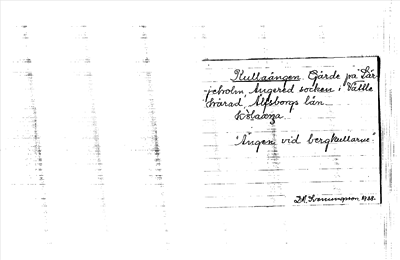 Kullaängen. Gärde på Lär-
jeholm, Angered socken i Vättle
härad, Älfsborgs län.
"Ängen vid bergkullarne"
D.A. Svenungsson 1928.